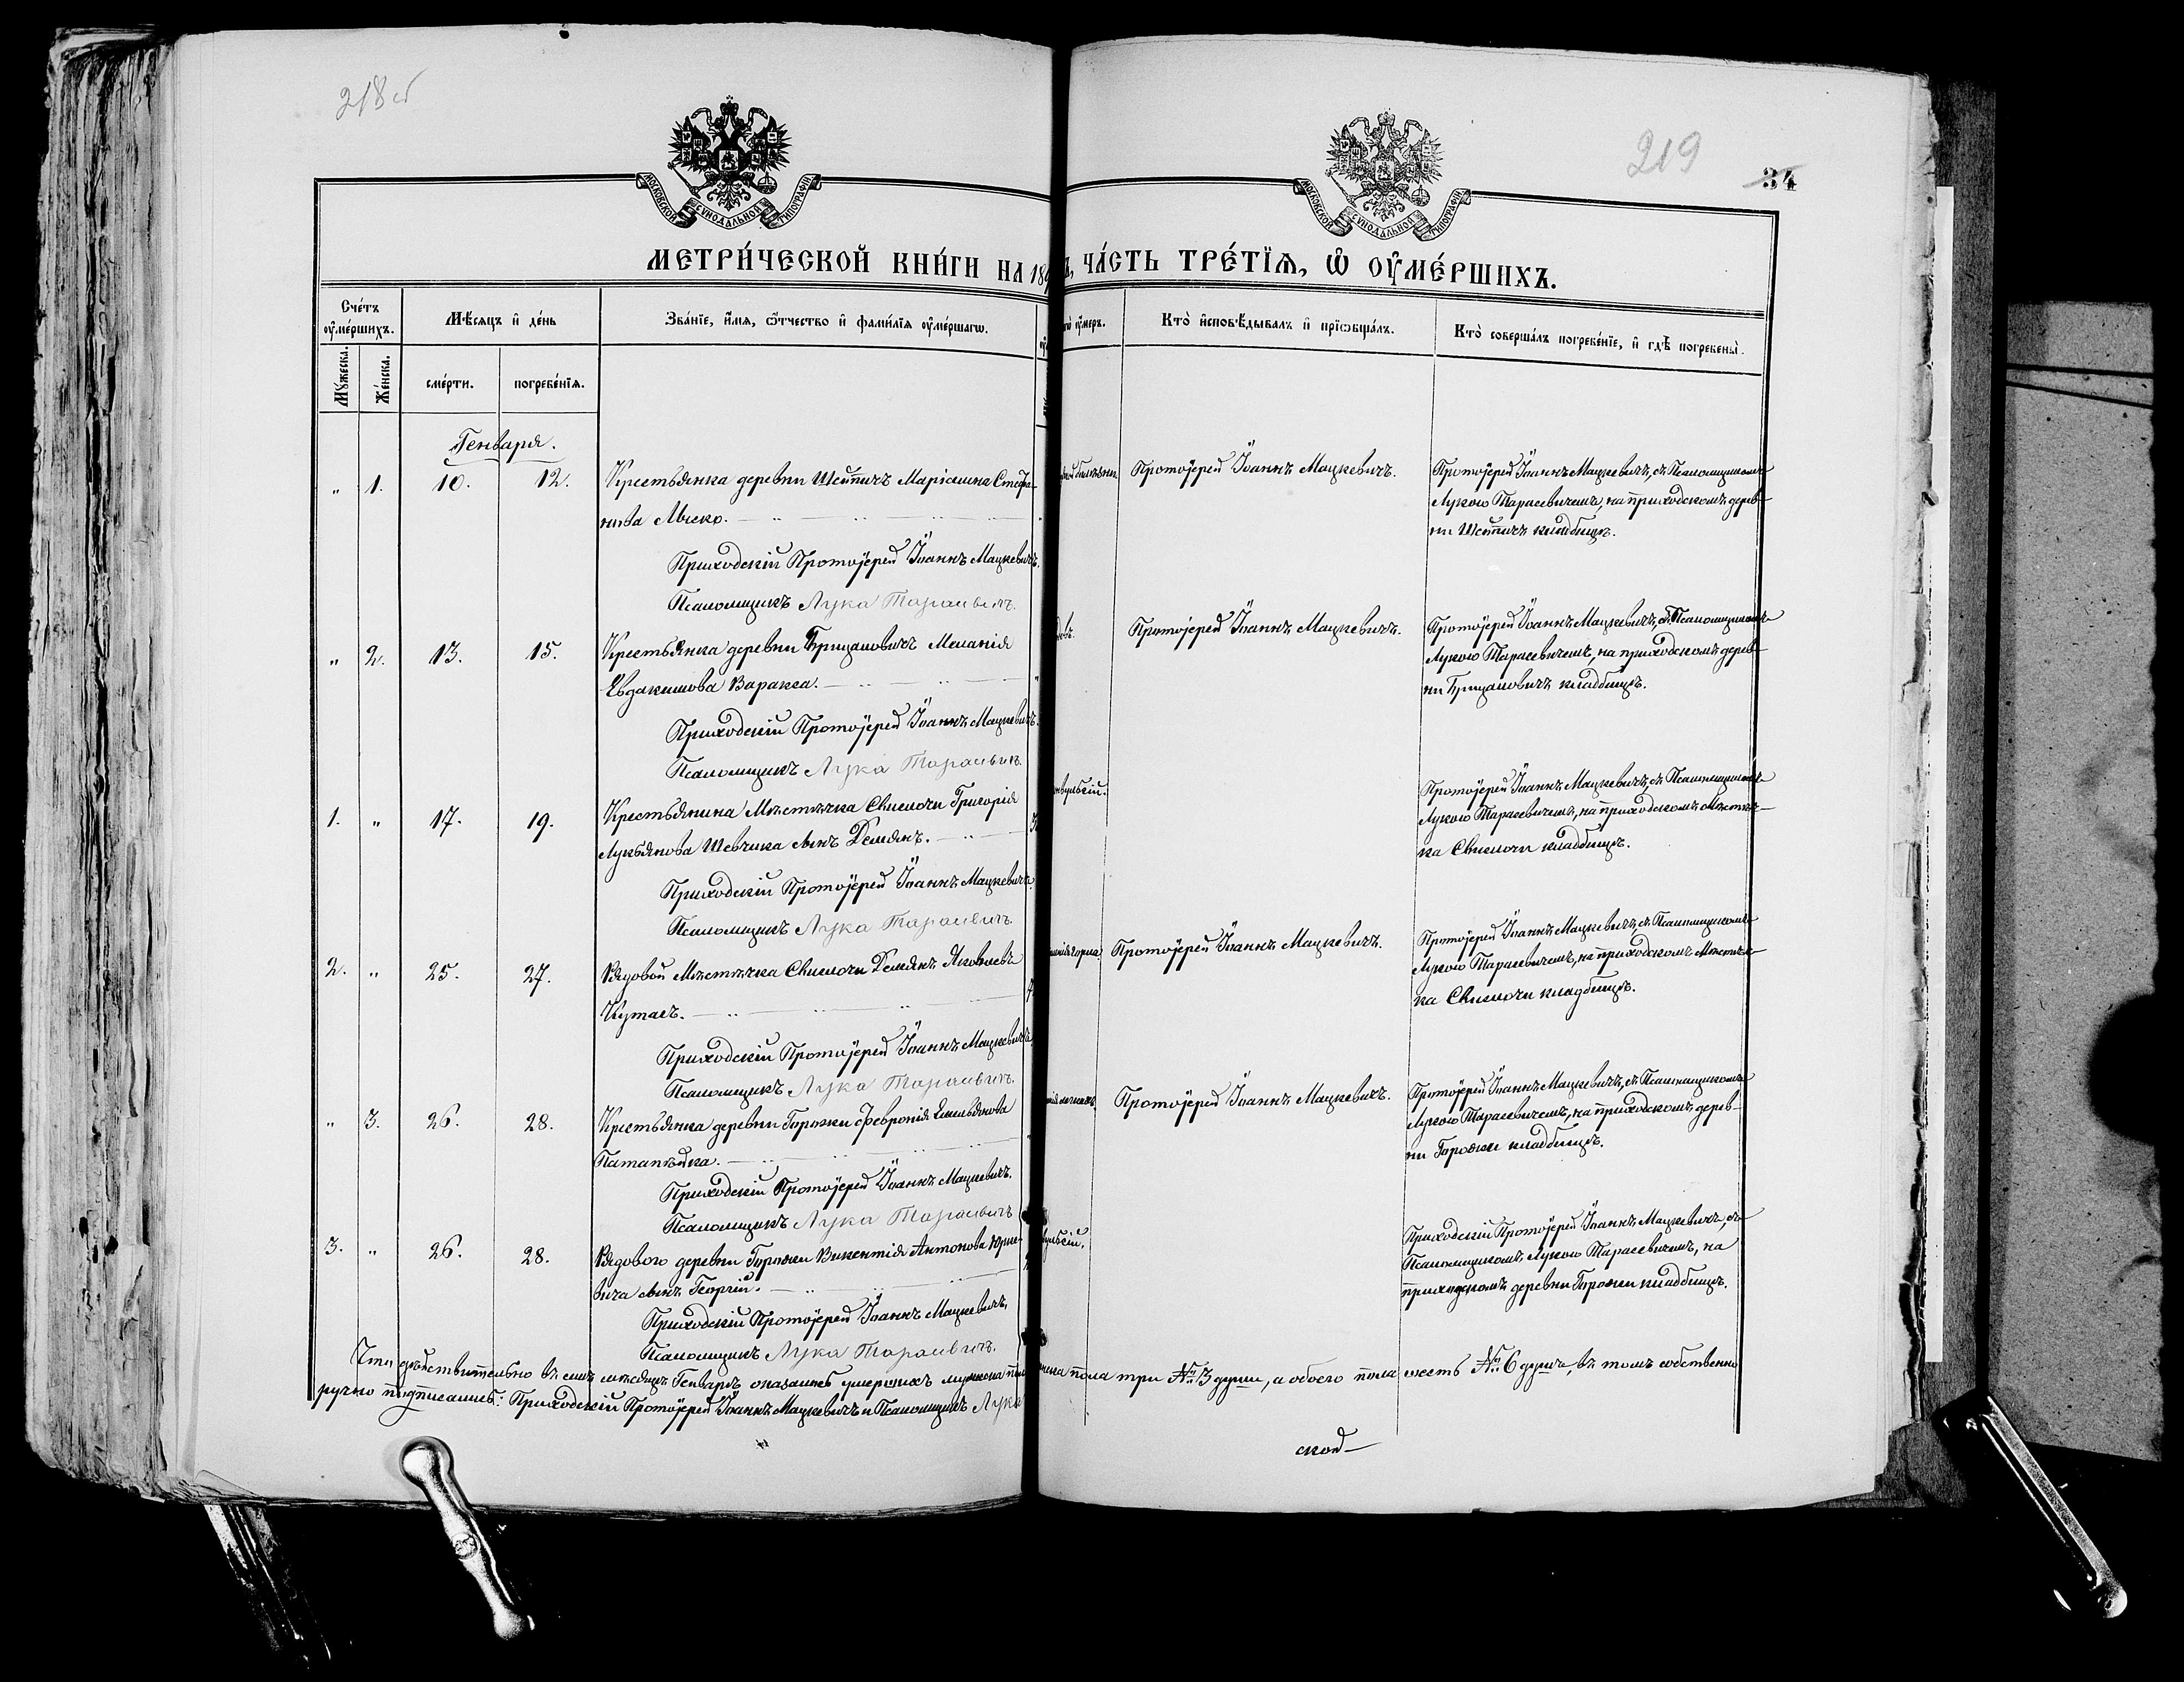 218 об
219
34
МОСКОВСКОЙ СѴНОДАЛЬНОЙ ТИПОГРАФІИ
МОСКОВСКОЙ СѴНОДАЛЬНОЙ ТИПОГРАФІИ
МЕТРИ́ЧЕСКОЙ КНИ́ГИ НА 189
ЧА́СТЬ ТРЕ́ТЇѦ, Ѽ ОУ҆МЕ́РШИХЪ.
Сче́тъ оу҆ме́ршихъ.
Мꙋ́жеска.
Же́нска.
Мѣ́сѧцъ и҆ де́нь
сме́рти.
погребе́нїѧ.
Зва́нїе, и҆́мѧ, ѻ҆́тчество и҆ фами́лїѧ оу҆ме́ршагѡ.
оу҆меръ.
Кто̀ и҆сповѣ́дывалъ и҆ прїѡбща́лъ.
Кто̀ соверша́лъ погребе́нїе, и҆ гдѣ̀ погребены̀.
Генваря.
" 1. 10. 12. Крестьянка деревни Шейпичъ Маріанна Стефа-
нова Мыско.
Приходскій Протоіерей Іоаннъ Мацкевичъ.
Псаломщикъ Лука Тарасевичъ.
Протоіерей Іоаннъ Мацкевичъ.
Протоіерей Іоаннъ Мацкевичъ, съ Псаломщикомъ
Лукою Тарасевичемъ, на приходскомъ дерев-
ни Шейпичъ кладбищѣ.
" 2. 13. 15. Крестьянка деревни Грицановичъ Меланія
ЕвдакимоваВаракса.
Приходскій Протоіерей Іоаннъ Мацкевичъ.
Псаломщикъ Лука Тарасевичъ.
Протоіерей Іоаннъ Мацкевичъ.
Протоіерей Іоаннъ Мацкевичъ, съ Псаломщикомъ
Лукою Тарасевичемъ, на приходскомъ дерев-
ни Грицановичъ кладбищѣ.
1. " 17. 19. Крестьянина Мѣстечка Свислочи Григорія
Лукьянова Шевчика сынъ Демьянъ.
Приходскій Протоіерей Іоаннъ Мацкевичъ.
Псаломщикъ Лука Тарасевичъ.
Протоіерей Іоаннъ Мацкевичъ, съ Псаломщикомъ
Лукою Тарасевичемъ, на приходскомъ Мѣстеч-
ка Свислочи кладбищѣ.
2. " 25. 27. Рядовой Мѣстечка Свислочи Демьянъ Яковлевъ
Кутаеъ.
Приходскій Протоіерей Іоаннъ Мацкевичъ.
Псаломщикъ Лука Тарасевичъ.
Протоіерей Іоаннъ Мацкевичъ.
Протоіерей Іоаннъ Мацкевичъ, съ Псаломщикомъ
Лукою Тарасевичемъ, на приходскомъ Мѣстеч-
ка Свислочи кладбищѣ.
" 3. 26. 28. Крестьянка деревни Горожи Февронія Емельянова
Патапейка.
Приходскій Протоіерей Іоаннъ Мацкевичъ.
Псаломщикъ Лука Тарасевичъ
Протоіерей Іоаннъ Мацкевичъ.
Протоіерей Іоаннъ Мацкевичъ, съ Псаломщикомъ
Лукою Тарасевичемъ, на приходскомъ дерев-
ни Горожи кладбищѣ.
3. " 26. 28. Рядового деревни Горожи Викентія Антонова Юрке-
вича сынъ Георгій.
Приходскій Протоіерей Іоаннъ Мацкевичъ,
Псаломщикъ Лука Тарасевичъ.
Приходскій Протоіерей Іоаннъ Мацкевичъ, съ
Псаломщикомъ Лукою Тарасевичемъ, на
приходскомъ деревни Горожи кладбищѣ.
Что дѣйствительно въ семъ мѣсяцѣ Генварѣ оказалось умершихъ мужеска пола три №3 души, а обоего пола шесть №6 душъ, въ томъ собственно
ручно подписались: Приходскій Протоіерей Іоаннъ Мацкевичъ и Псаломщикъ Лука